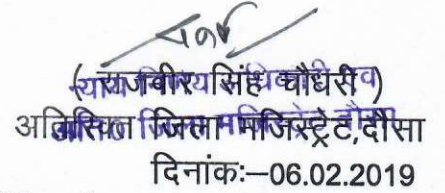 ( राजबीर सिंह चौधरी )
अतिरिक्त जिला मजिस्ट्रेट,दौसा
दिनांकः—06.02.2019